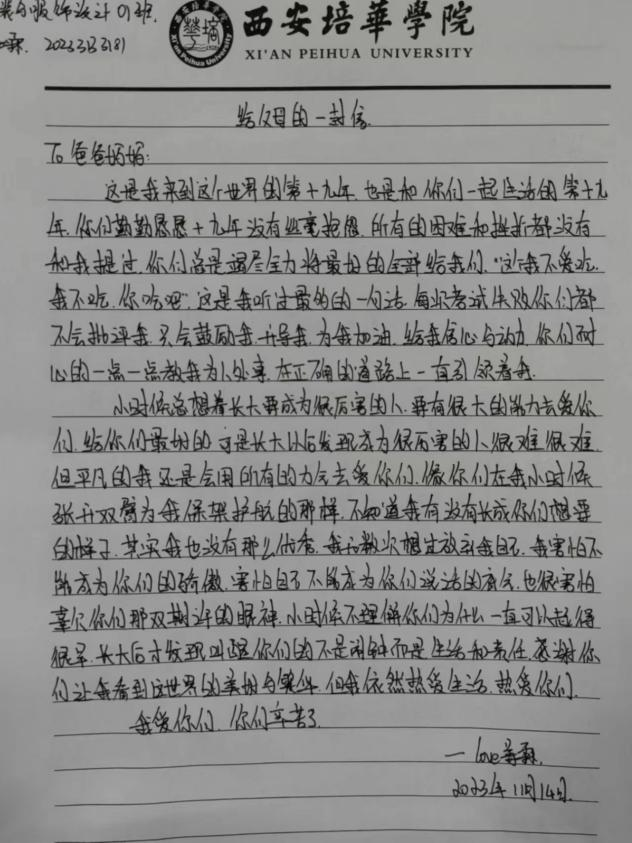 装与服饰设计01班
2023333181
西安培華學院
XI'AN PEIHUA UNIVERSITY
给父母的一封信
To 爸爸妈妈:
这是我来到这个世界的第十九年, 也是和你们一起生活的第十九
年, 你们勤勤恳恳十九年没有丝毫抱怨, 所有的困难和挫折都没有
和我提过, 你们总是竭尽全力将最好的全部给我们, "这个我不爱吃,
我不吃, 你吃吧", 这是我听过最多的一句话, 每次考试失败你们都
不会批评我, 只会鼓励我, 开导我, 为我加油, 给我信心与动力, 你们耐
心的一点一点教我为人处事, 在正确的道路上一直引领着我.
小时候总想着长大要成为很厉害的人, 要有很大的能力去爱你
们, 给你们最好的, 可是长大以后发现成为很厉害的人很难很难,
但平凡的我还是会用所有的力气去爱你们, 像你们在我小时候
张开双臂为我保驾护航的那样, 不知道我有没有长成你们想要
的样子, 其实我也没有那么优秀, 我无数次想过放弃我自己, 我害怕不
能成为你们的骄傲, 害怕自己不能成为你们说话的底气, 也很害怕
辜负你们那双期许的眼神, 小时候不理解你们为什么一直可以起得
很早, 长大后才发现叫醒你们的不是闹钟而是生活和责任, 感谢你
们让我看到这世界的美好与繁华, 但我依然热爱生活, 热爱你们,
我爱你们, 你们辛苦了
— love
2023年11月14日.